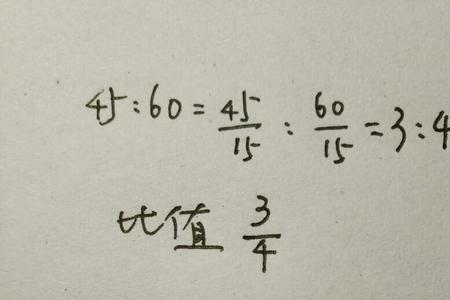 45:60=45/15:60/15=3:4
比值 3/4